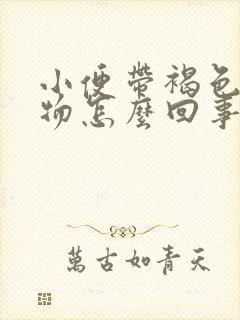 小便帶褐色
物怎麼回事
萬古如青天